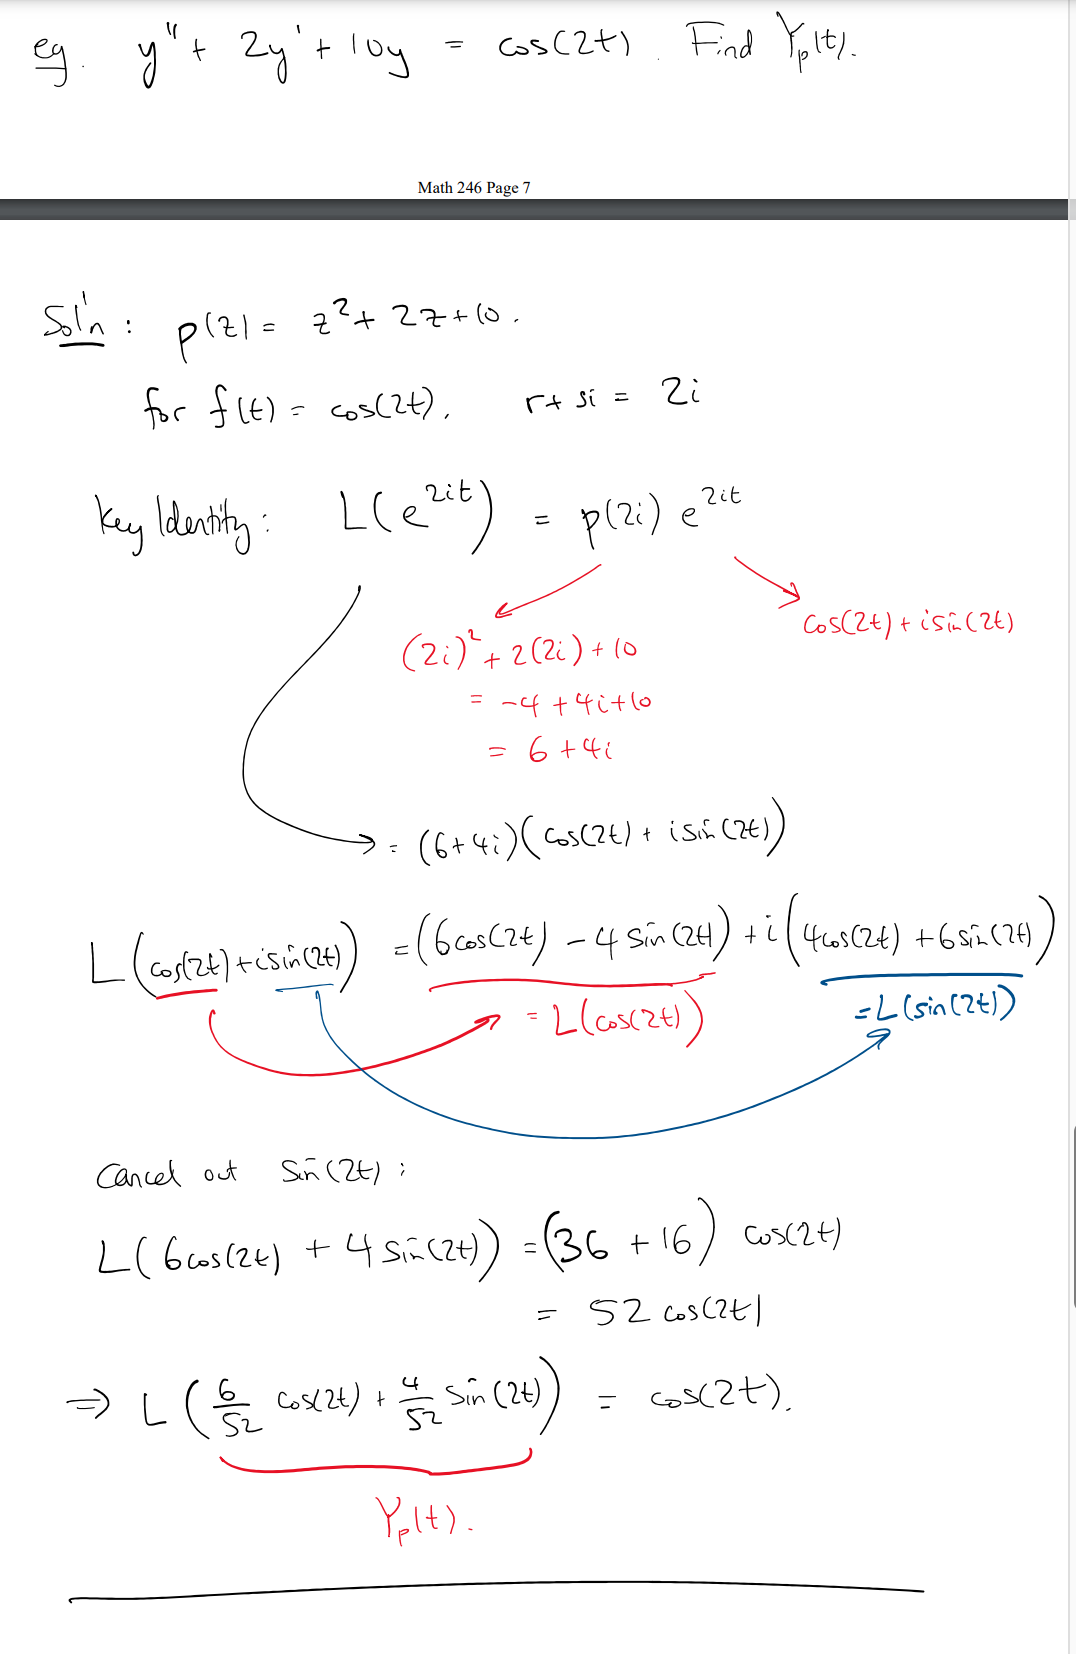 eg. y'' + 2y' + 10y = cos(2t). Find Yp(t).
Math 246 Page 7
Sol'n : p(z) = z² + 2z + 10.
for f(t) = cos(2t), r + si = 2i
Key Identity: L(e^{2it}) = p(2i) e^{2it}
cos(2t) + i sin(2t)
(2i)² + 2(2i) + 10
= -4 + 4i + 10
= 6 + 4i
= (6 + 4i)(cos(2t) + i sin(2t))
L(cos(2t) + i sin(2t)) = (6cos(2t) - 4 sin(2t)) + i(4cos(2t) + 6 sin(2t))
= L(cos(2t)) = L(sin(2t))
Cancel out sin(2t) :
L(6cos(2t) + 4 sin(2t)) = (36 + 16) cos(2t)
= 52 cos(2t)
⇒ L(6/52 cos(2t) + 4/52 sin(2t)) = cos(2t).
Yp(t).